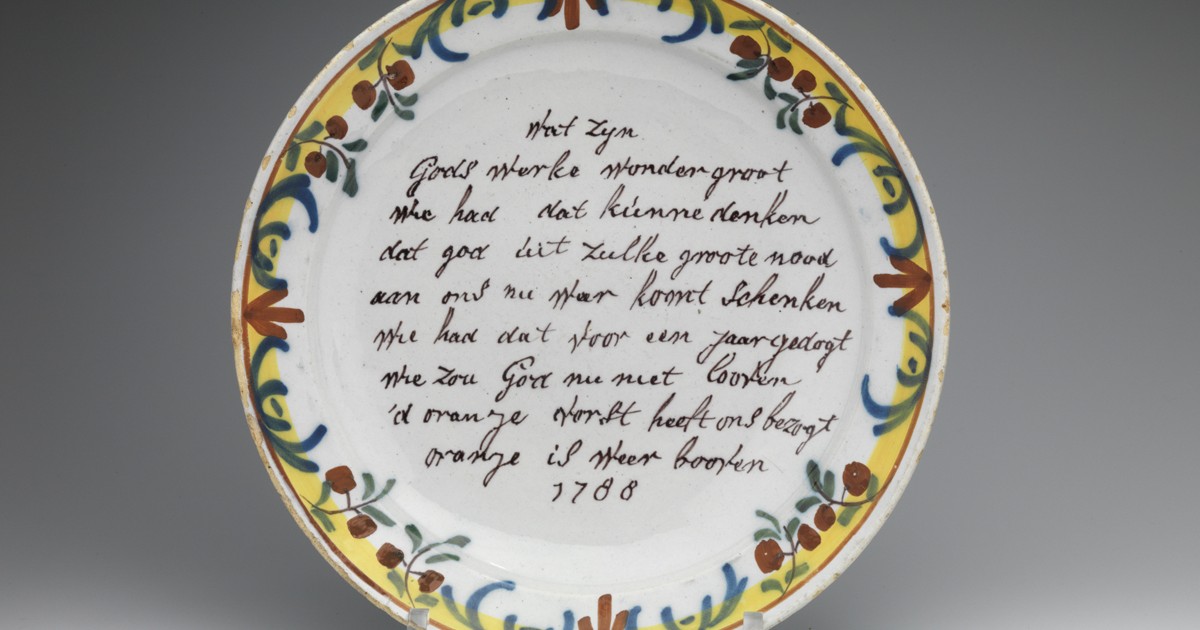 Wat Zyn
Gods werke wonder groot
Wie had dat kúnne denken
dat god úit zulke groote nood
aan ons nu weer komt schenken
Wie had dat voor een jaar gedogt
wie zou God nu niet looven
'd oranje vorst heeft ons bezogt
oranje is weer booven
1788